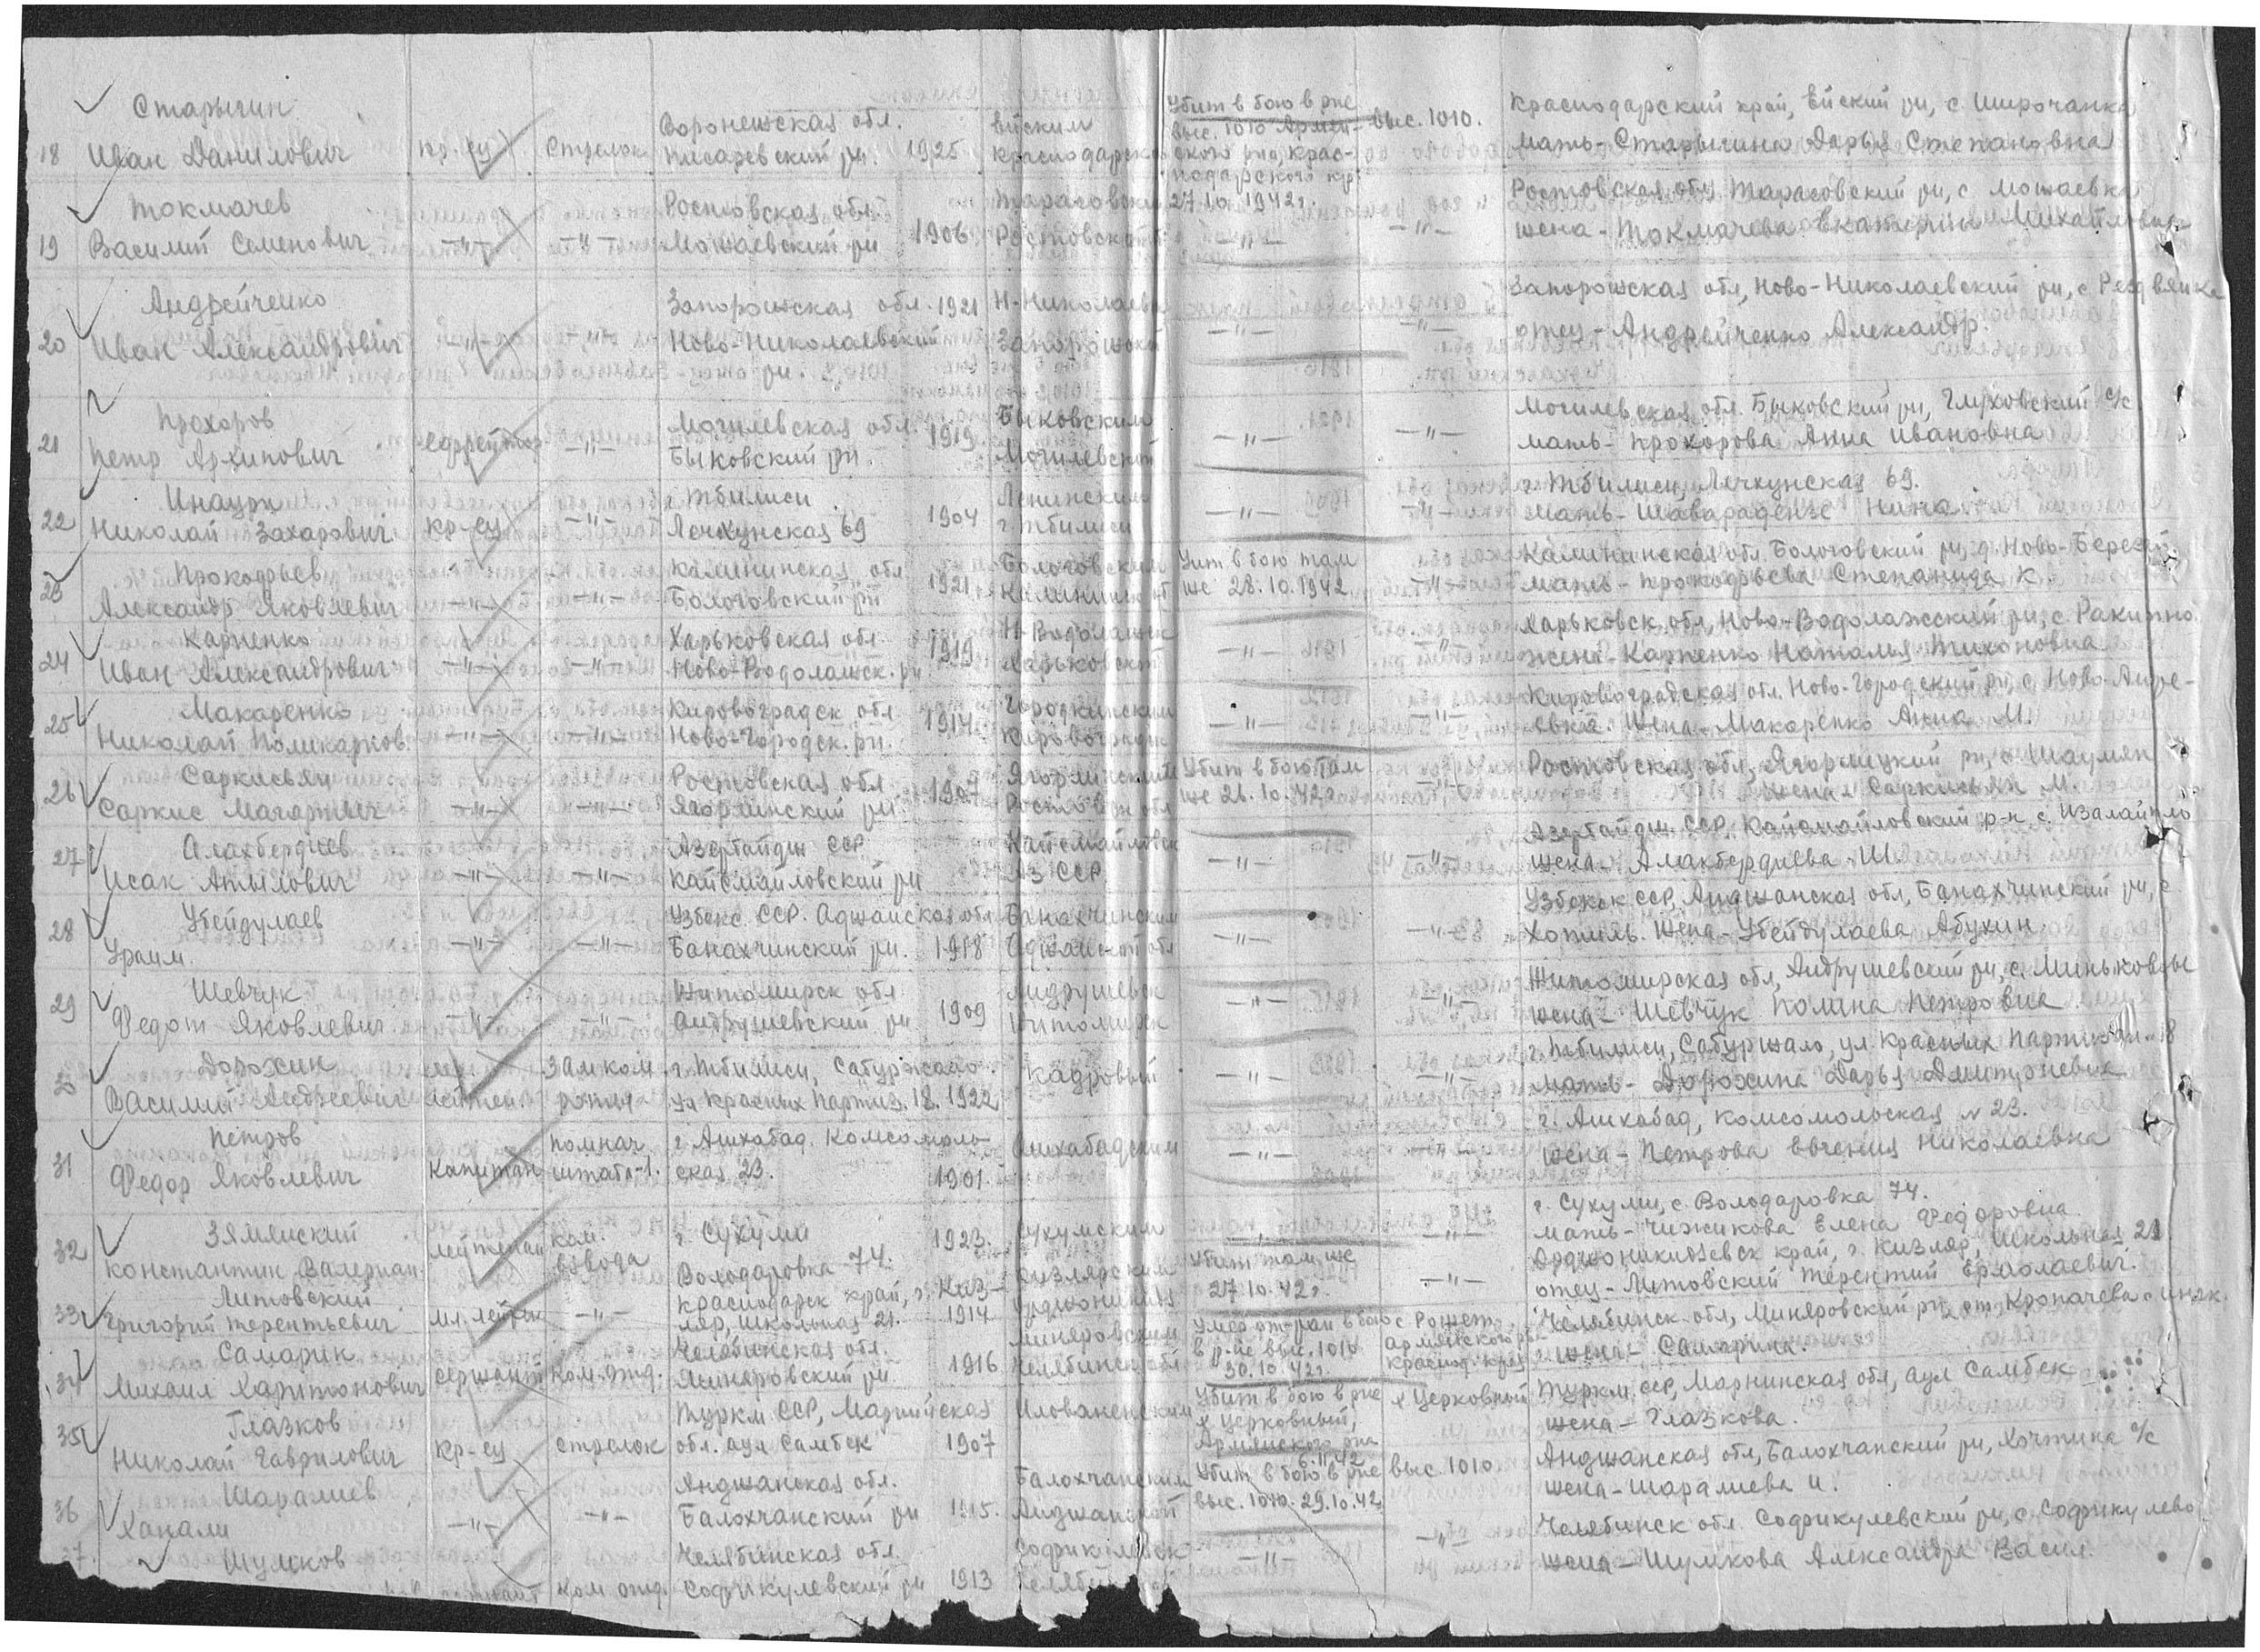 Старыгин
18 Иван Данилович кр-ец Стрелок Воронежская обл. Писаревский рн. 1925 Ейским Краснодарско Убит в бою в рне выс. 1010 Армян-ского рна, Крас-нодарского кр. 27.10.1942г. выс. 1010. Краснодарский край, Ейский рн, с. Широчанка
мать-Старыгина Дарья Степановна
Токмачев
19 Василий Семенович -"- -"- Ростовская обл. Мошаевский рн 1906 Тарасовским Ростовской -"- -"- Ростовская обл. Тарасовский рн, с. Мошаевка
жена-Токмачева Екатерин Михайловна
Андрейченко
20 Иван Александрович -"- -"- Запорожская обл. Ново-Николаевский рн. 1921 Н-Николаевс Запорожск -"- -"- Запорожская обл, Ново-Николаевский рн, с
отец-Андрейченко Александр.
Прохоров
21 Петр Архипович ефрейтор -"- Могилевская обл. Быковский рн. 1919. Быковским Могилевской -"- -"- Могилевская обл. Быковский рн, Глуховский с/с
мать-Прохорова Анна Ивановна
Инаури
22 Николай Захарович кр-ец -"- г. Тбилиси Лечхунская 69 1904 Ленинским г. Тбилиси -"- -"- г. Тбилиси, Лечхунская 69.
мать- Нина
Прокофьев
23 Александр Яковлевич -"- -"- Калининская обл Бологовский рн 1921 Бологовским Калининск об Убит в бою там же 28.10.1942 -"- Калининская обл. Бологовский рн, д. Ново-
мать-Прокофьева Степанида К
Карпенко
24 Иван Александрович -"- -"- Харьковская обл. Ново-Водолажск. рн 1919 Н-Водолажск Харьковской -"- -"- Харьковск. обл, Ново-Водолажский рн, с. Ракитно.
жена-Карпенко Наталья Тихоновна
Макаренко
25 Николай Поликарпов. -"- -"- Кировоградск обл Ново-Городск. рн. 1914 Кировоградск -"- -"- Кировоградская обл. Ново-Городский рн, с. Ново-Андре-
евка. Жена-Макаренко Анна М.
Саркисьян
26 Саркис -"- -"- Ростовская обл рн. 1907 Ростовск обл Убит в бою там же 26.10.42г. -"- Ростовская обл, рн, с. Шаумян
жена-Саркисьян М.
Алахбердиев
27 Исак -"- -"- Азербайдж ССР Кайсмайловский рн Аз ССР -"- -"- Азербайдж. ССР, Кайсмайловский р-н, с.
жена-Алахбердиева Ш.
Убейдулаев
28 Ураим. -"- -"- Узбекс. ССР. Аджанская обл Банахчинский рн. 1918 Банахчинским Аджанской обл -"- -"- Узбекск ССР, Анджанская обл, Банахчинский рн, с
Хотиль. Жена-Убейдулаева Абухин.
Шевчук
29 Федот Яковлевич -"- -"- Житомирск обл Андрушевский рн 1909 Андрушевск Житомирск -"- -"- Житомирская обл, Андрушевский рн, с. Миньковцы
жена-Шевчук Полина Петровна
Дорохин
30 Василий Андреевич мл. лейтен. зам ком роты г. Тбилиси, Сабуртало ул Красных Партиз. 18. 1922 кадровый -"- -"- г. Тбилиси, Сабуртало, ул. Красных Партизан-18
мать-Дорохина Дарья Дмитриевна
Петров
31 Федор Яковлевич Капитан помнач. штаба-1. г. Ашхабад. Комсомоль-ская 23. 1901. Ашхабадским -"- -"- г. Ашхабад, Комсомольская № 23.
жена-Петрова Евгения Николаевна
Зяминский
32 Константин Валериан. Лейтенан ком. взвода г. Сухуми Володаровка-74. 1923. Сухумским -"- -"- г. Сухуми, с. Володаровка 74.
мать-Чижикова Елена Федоровна.
Литовский
33 Григорий Терентьевич мл. лейтен -"- Краснодарск край, г. Киз-ляр, Школьная 21. 1914 Кизлярским Орджоникидз Убит там же 27.10.42г. -"- Орджоникидзевск край, г. Кизляр, Школьная 21
отец-Литовский Терентий Ермолаевич.
Самарин
34 Михаил Харитонович сержант Ком. отд. Челябинская обл. Миняровский рн 1916 Миняровским Челябинск обл Умер от ран в бою в р-не выс. 1010 30.10.42г. с Рожет Армянского рн Краснод. края Челябинск. обл, Миняровский рн, ст. Кропачева
жена-Самарина.
Глазков
35 Николай Гаврилович кр-ец стрелок Туркм. ССР, Марийская обл. аул Самбек 1907 Убит в бою в рне х Церковный, Армянского рна 6.11.42 х Церковный Туркм. ССР, Марнинская обл, аул Самбек
жена-Глазкова.
Шаралиев
36 Ханали -"- -"- Анджанская обл. Балохчанский рн 1915. Балохчанским Анджанской Убит в бою в рне выс. 1010. 29.10.42 выс. 1010. Анджанская обл, Балохчанский рн, с/с
жена-Шаралиева И.
Шумков
37. Ком отд. Челябинская обл. Софикулевский рн 1913 -"- -"- Челябинск обл. Софрикулевский рн, с. Софрикулево
жена-Шумкова Александра Васил.